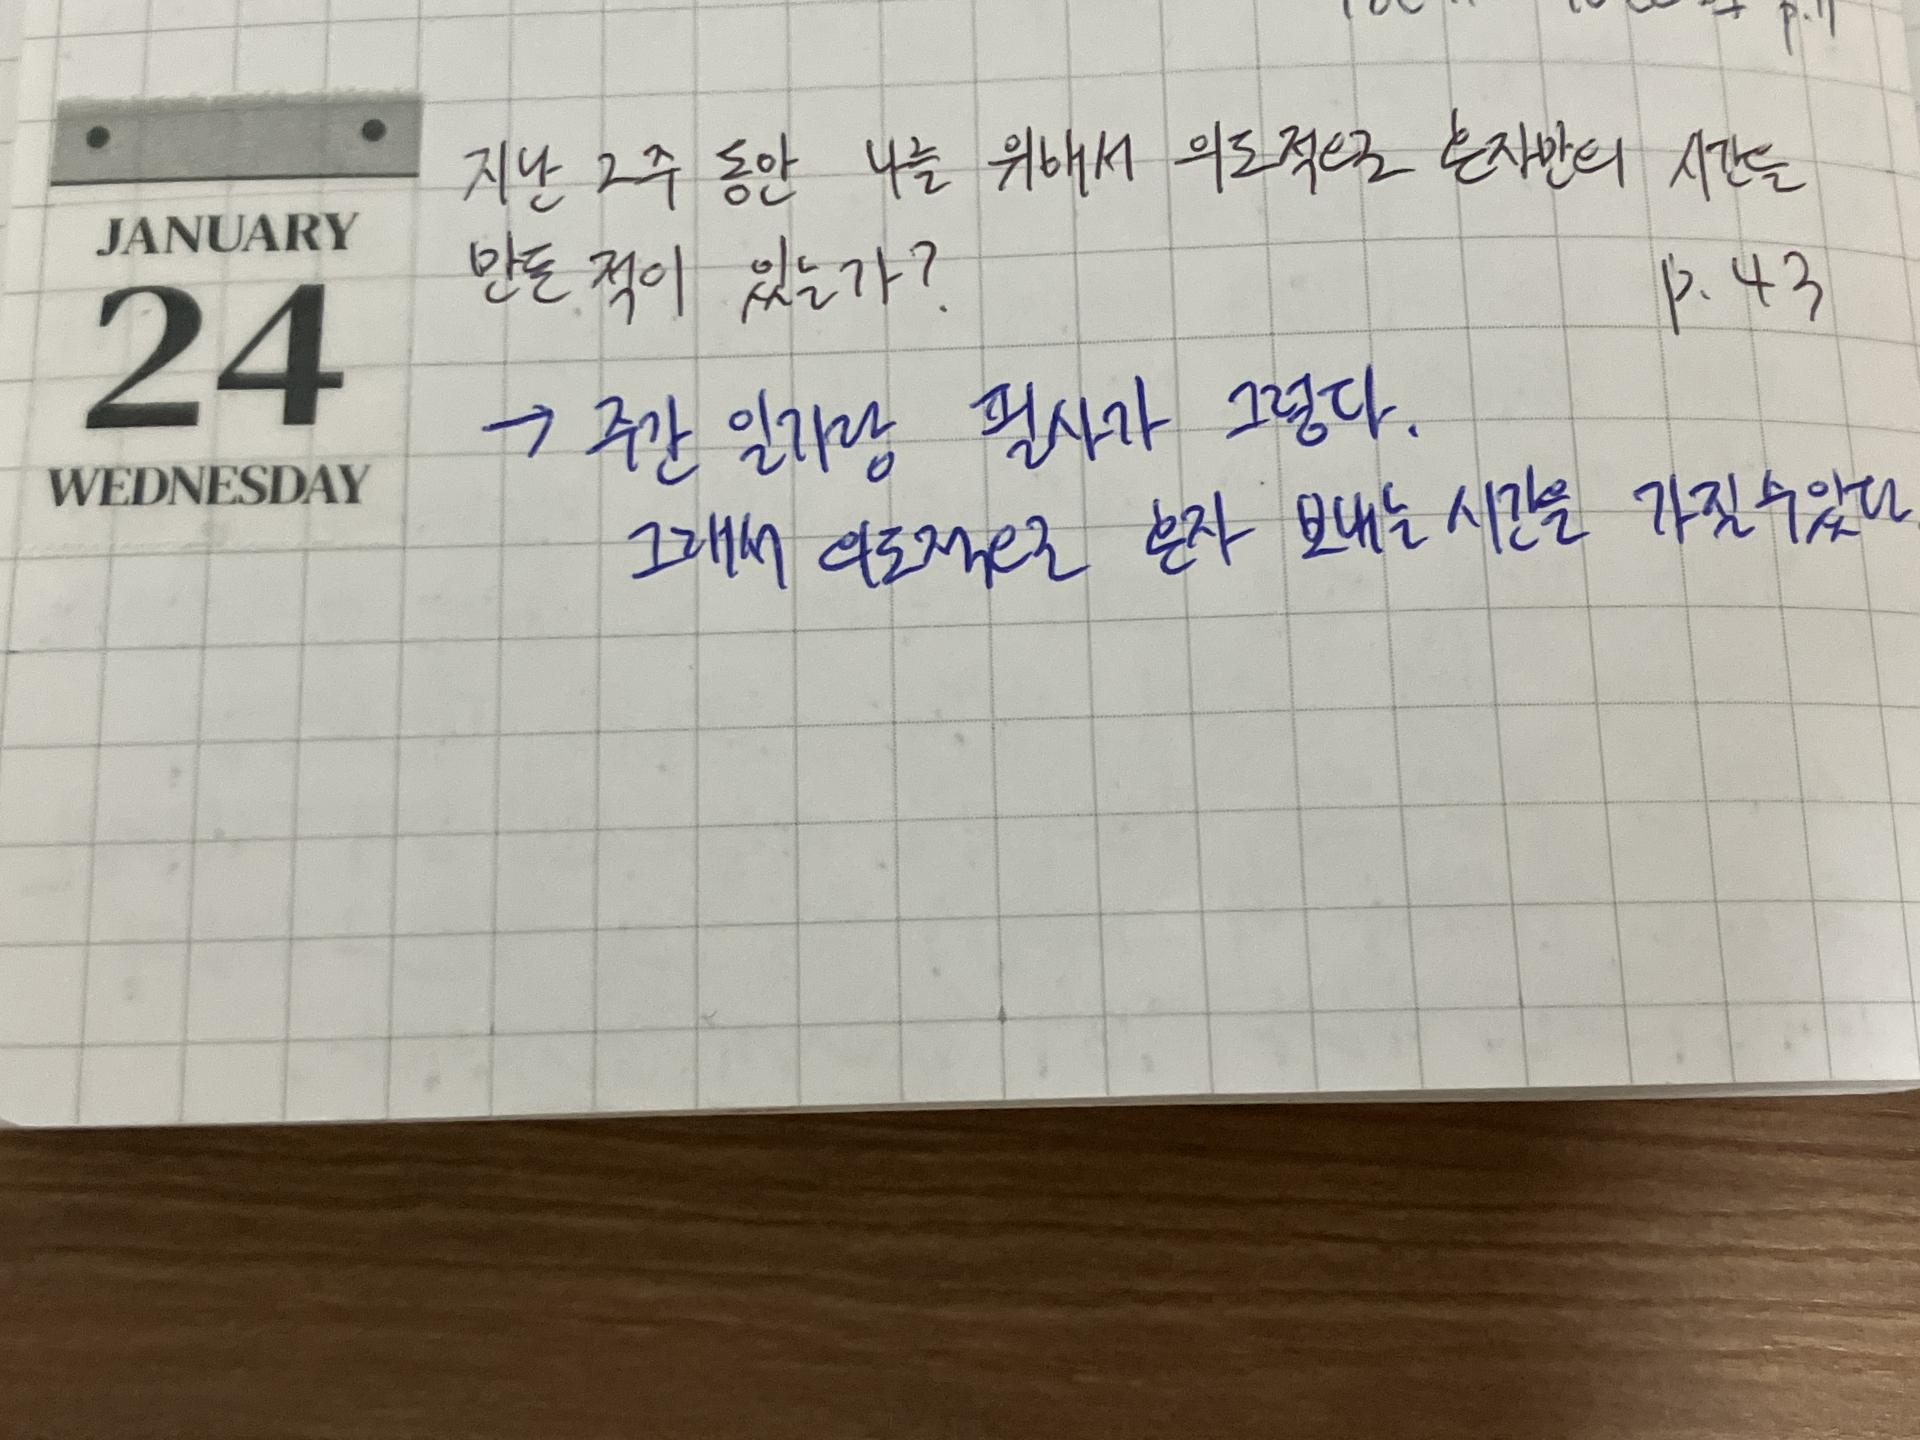 p.17
지난 2주 동안 나를 위해서 의도적으로 혼자만의 시간을
만든 적이 있는가?
p. 43
JANUARY
24
WEDNESDAY
→ 주간 일기랑 필사가 그렇다.
그래서 의도적으로 혼자 보내는 시간을 가질 수 있었다